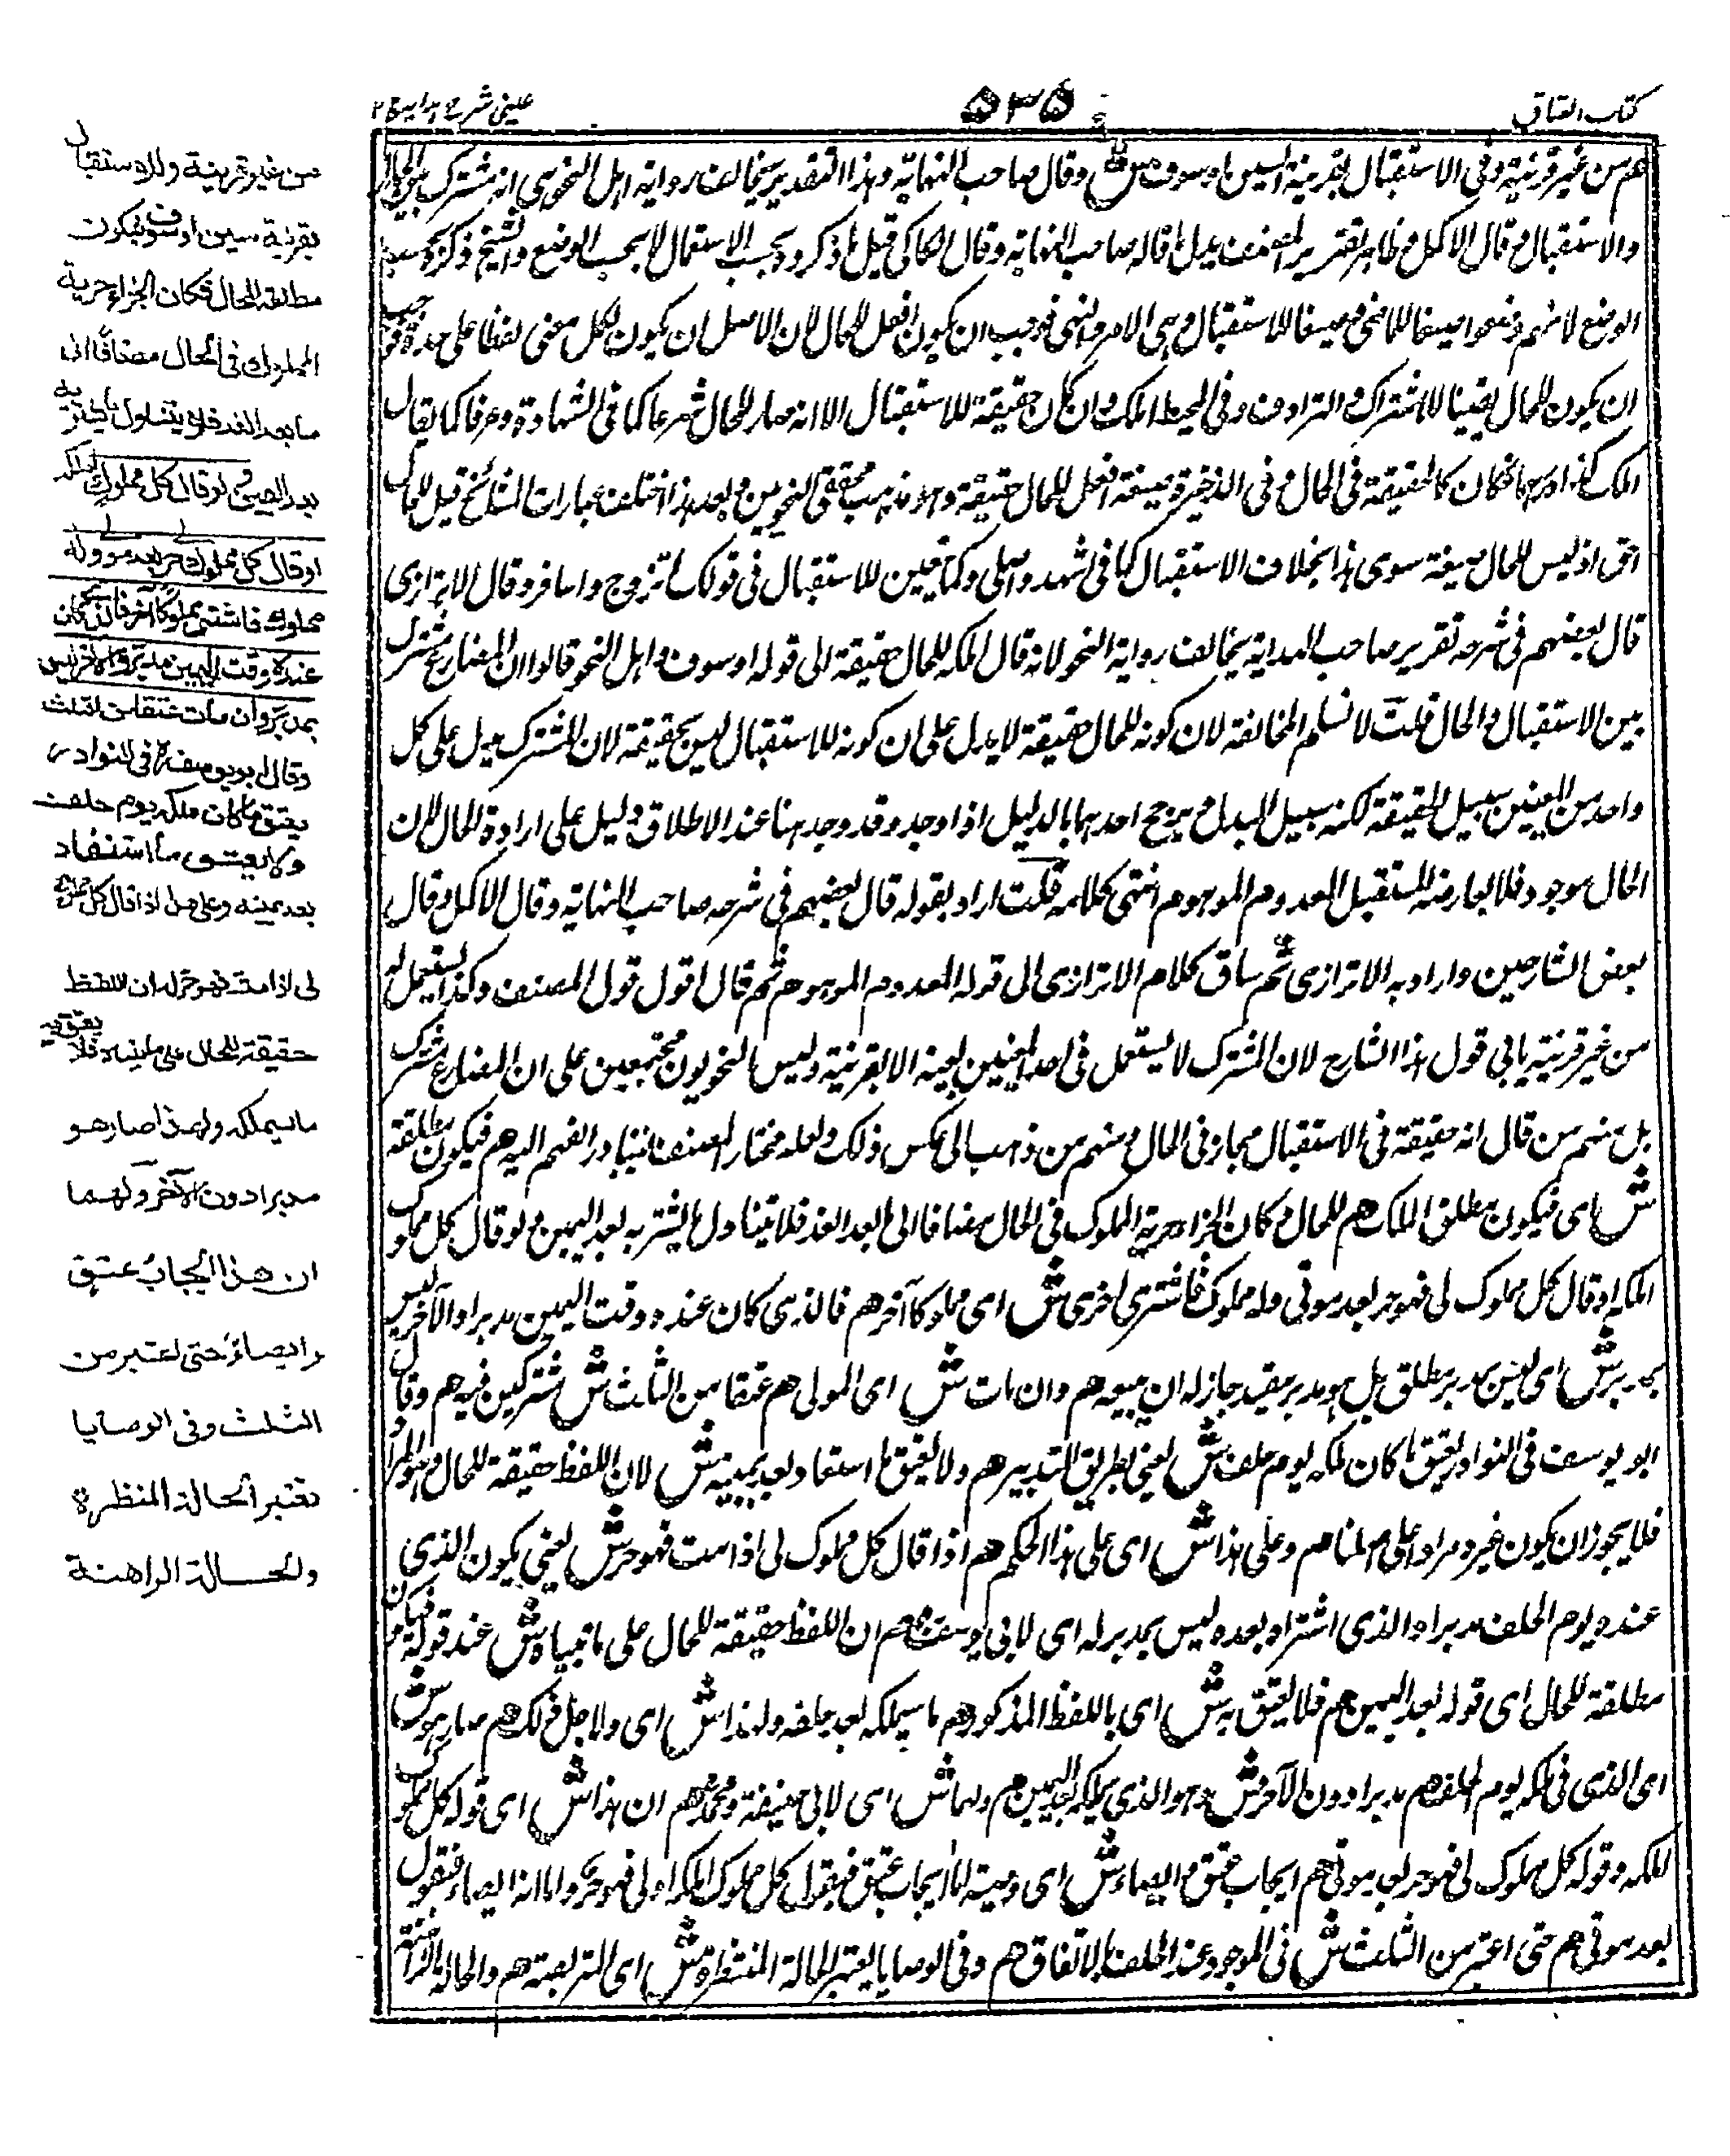 كتاب العتاق
۵۳۵
عينى شرح هدايه ج ٢
هم من غير قرينة وفى الاستقبال بقرينة السين او سوف ش وقال صاحب النهاية وهذا التقدير يخالف رواية اهل النحو هى انه مشترك بين الحال
والاستقبال وقال الاكمل وظاهر تقرير المصنف يدل على ما قاله صاحب النهاية وقال الكاكى قيل ما ذكره بحسب الاستعمال لا بحسب الوضع والشيخ ذكره بحسب
الوضع لانهم وضعوا صيغا للماضى وصيغا للاستقبال وهى الامر والنهى فوجب ان يكون افعل للحال لان الاصل ان يكون لكل معنى لفظا على حدة فوجب
ان يكون للحال يقينا لا اشتراك والترادف وفى المحيط املك وان كان حقيقة للاستقبال الا انه صار للحال شرعا كما فى الشهادة وعرفا كما يقال
املك كذا درهما فكان كالحقيقة فى الحال وفى الذخيرة صيغة افعل للحال حقيقة وهو مذهب محققى النحويين وبعد هذا اختلف عبارات المشائخ قيل للحال
احق اذ ليس للحال صيغة سوى هذا بخلاف الاستقبال كما فى اشهد واصلى وكما تعين للاستقبال فى قولك اتزوج واسافر وقال الاترازى
قال بعضهم فى شرحه تقرير صاحب الهداية يخالف رواية النحو لانه قال املكه للحال حقيقة الى قوله او سوف واهل النحو قالوا ان المضارع مشترك
بين الاستقبال والحال قلت لا نسلم المخالفة لان كونه للحال حقيقة لا يدل على ان كونه للاستقبال ليس بحقيقة لان المشترك يدل على كل
واحد من المعنيين سبيل الحقيقة لكنه سبيل البدل ويرجح احدهما بالدليل اذا وجد وقد وجد هنا عند الاطلاق دليل على ارادة الحال لان
الحال موجود فلا يعارضه المستقبل المعدوم الموهوم انتهى كلامه قلت اراد بقوله قال بعضهم فى شرحه صاحب النهاية وقال الاكمل وقال
بعض الشارحين واراد به الاترازى ثم ساق كلام الاترازى الى قوله المعدوم الموهوم ثم قال اقول قول المصنف وكذا يستعمل له
من غير قرينة يابى قول هذا الشارح لان المشترك لا يستعمل فى احد المعنيين بعينه الا بقرينة وليس النحويون مجتمعين على ان المضارع مشترك
بل منهم من قال انه حقيقة فى الاستقبال مجاز فى الحال ومنهم من ذهب الى عكس ذلك ولعله مختار المصنف لتبادر الفهم اليه هم فيكون مطلقه
ش اى فيكون مطلق املك هم للحال وكان الجزاء حرية المملوك فى الحال مضافا الى ما بعد الغد فلا يتناول ما يشتريه بعد اليمين ولو قال كل مملوك
املكه او قال كل مملوك لى فهو حر بعد موتى وله مملوك فاشترى اخرى ش اى مملوكا آخر هم فالذى كان عنده وقت اليمين مدبر او الآخر ليس
بمدبر ش اى ليس مدبر مطلق بل هو مدبر مقيد جاز له ان يبيعه هم وان مات ش اى المولى هم عتقا من الثلث ش مشتركين فيه هم وقال
ابو يوسف فى النوادر يعتق ما كان ملكه يوم حلف ش يعنى بطريق التدبير هم ولا يعتق ما استفاد بعد يمينه ش لان اللفظ حقيقة للحال وهو المراد
فلا يجوز ان يكون غيره مرادا على اصلنا هم وعلى هذا ش اى على هذا الحكم هم اذا قال كل مملوك لى اذا مت فهو حر ش يعنى يكون الذى
عنده يوم الحلف مدبرا والذى اشتراه بعده ليس بمدبر له اى لابى يوسف هم ان اللفظ حقيقة للحال على ما بيناه ش عند قوله فيكون
مطلقه للحال اى قوله بعد اليمين هم فلا يعتق به ش اى باللفظ المذكور هم ما سيملكه بعد حلفه ولهذا ش اى ولاجل ذلك هم صار هو ش
اى الذى فى ملكه يوم الحلف هم مدبرا دون الآخر ش وهو الذى يملكه بعد اليمين هم ولهما ش اى لابى حنيفة ومحمد هم ان هذا ش اى قوله كل مملوك
املكه وقوله كل مملوك لى فهو حر بعد موتى هم ايجاب عتق وايصاء ش اى وصية اما ايجاب عتق فبقوله كل مملوك املكه او لى فهو حر واما انه ايصاء فبقوله
بعد موتى هم حتى اعتبر من الثلث ش فى الموجود عند الحلف بالاتفاق هم وفى الوصايا يعتبر الحالة المنتظرة ش اى المتربصة هم والحالة الراهنة
من غير قرينة وللاستقبال
بقرينة سين او سوف فيكون
مطلقه للحال فكان الجزاء حرية
المملوك فى الحال مضافا الى
ما بعد الغد فلا يتناول ما يشتريه
بعد اليمين ولو قال كل مملوك املكه
او قال كل مملوك لى حر بعد موتى وله
مملوك فاشترى مملوكا آخر فالذى كان
عنده وقت اليمين مدبر والآخر ليس
بمدبر وان مات عتقا من الثلث
وقال ابو يوسف رح فى النوادر
يعتق ما كان ملكه يوم حلف
ولا يعتق ما استفاد
بعد يمينه وعلى هذا اذا قال كل مملوك
لى اذا مت فهو حر له ان اللفظ
حقيقة للحال على ما بيناه فلا يعتق به
ما سيملكه ولهذا صار هو
مدبرا دون الآخر ولهما
ان هذا ايجاب عتق
وايصاء حتى اعتبر من
الثلث وفى الوصايا
تعتبر الحالة المنتظرة
والحالة الراهنة